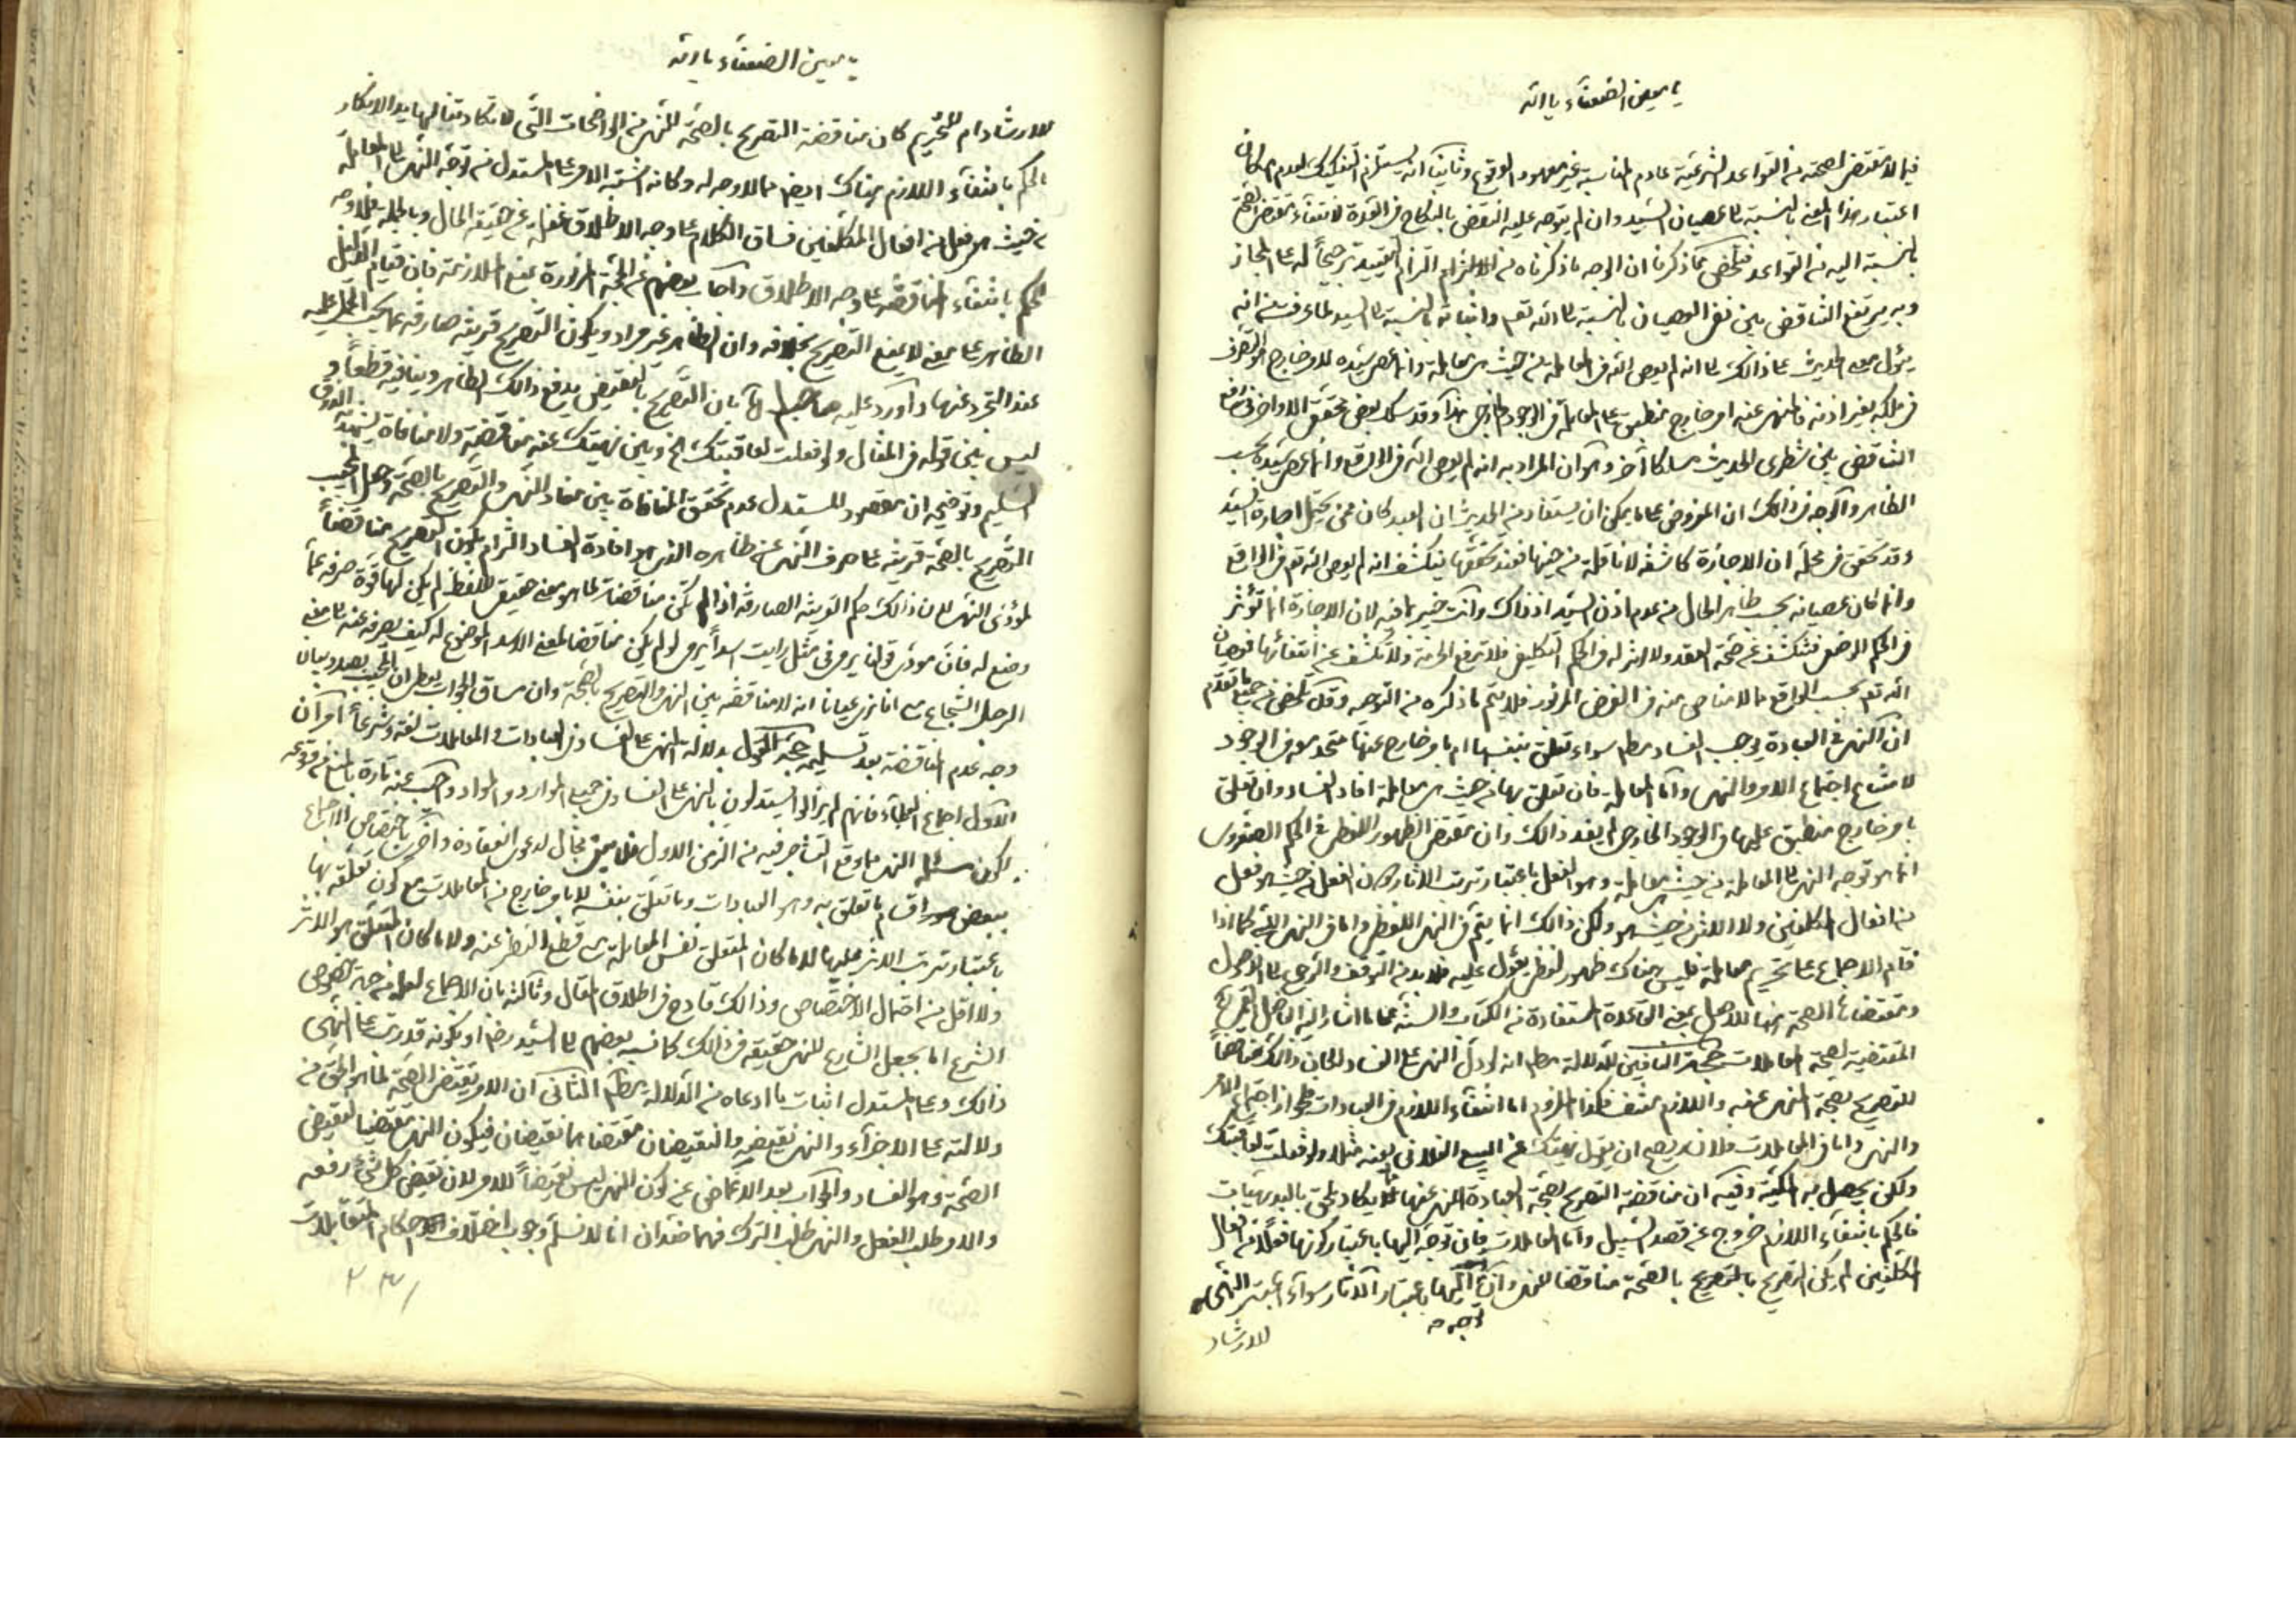 يا معين الضعفاء يا الله
فيما لا مقتضى لصحته من القواعد الشرعية عادم المناسبة غير معهود الوقوع وثانيا انه يستلزم التفكيك لعدم امكان
اعتبار هذا المعنى بالنسبة الى عصيان السيد وان لم يتوجه عليه النقض بالنكاح في العدة لانتفاء مقتضى الصحة
بالنسبة اليه من القواعد فتلخص مما ذكرنا ان الوجه ما ذكرناه من التزام التقييد ترجيحاً له على المجاز
وبه يرتفع التناقض بين نفي العصيان بالنسبة الى الله تعم واثباته بالنسبة الى السيد لما عرفت من انه
يؤل معنى الحديث على ذلك الى انه لم يعص الله في المعاملة من حيث هي معاملة وانما عصى سيده للامر خارج هو التصرف
في ملكه بغير اذنه فالمنهى عنه امر خارج منطبق على المعاملة في الوجود الخارجي هذا وقد سلك بعض محقق الاواخر في رفع
التناقض بين شطرى الحديث مسلكا آخر وهو ان المراد به انه لم يعص الله في الواقع وانما عصى سيده بحسب
الظاهر والوجه في ذلك ان المفروض على ما يمكن ان يستفاد من الحديث ان العبد كان ممن يحتمل اجازة السيد
وقد تحقق في محله ان الاجازة كاشفة لا ناقلة من حينها فعند تحققها ينكشف انه لم يعص الله تعم في الواقع
وانما كان عصيانه بحسب ظاهر الحال من عدم اذن السيد اذ ذاك وانت خبير بما فيه لان الاجازة انما تؤثر
في الحكم الوضعى فتكشف عن صحة العقد ولا اثر له في الحكم التكليفى فلا ترفع الحرمة ولا تكشف عن انتفائها فعصيان
الله تعم بحسب الواقع مما لا مناص منه في الفرض المزبور فلا يتم ما ذكره من التوجيه وقد تلخص من جميع ما تقدم
ان النهى في العبادة يوجب الفساد مطم سواء تعلق بنفسها ام بامر خارج عنها متحد معه في الوجود
لامتناع اجتماع الامر والنهى واما المعاملة فان تعلق بها من حيث هي معاملة افاد الفساد وان تعلق
بامر خارج منطبق عليها في الوجود الخارجي لم يفد ذلك وان مقتضى الظهور اللفظى في الحكم
انما هو توجه النهى الى المعاملة من حيث هي معاملة وهو الفعل باعتبار ترتب الاثار دون الفعل من حيث هو فعل
من افعال المكلفين ولا الاثر من حيث هو ولكن ذلك انما يتم في النهى اللفظى واما في النهى اللبى كما اذا
قام الاجماع على تحريم معاملة فليس هناك ظهور لفظى يعول عليه فلا بد من التوقف والرجوع الى الاصول
ومقتضاها الصحة لا للاصل بمعنى القاعدة المستفادة من الكتاب والسنة على ما اشار اليه
المقتضية لصحة المعاملات حجة النافين للدلالة مطم انه لو دل النهى على الفساد لكان ذلك مناقضاً
للتصريح بصحة المنهى عنه واللازم منتف فكذا الملزوم اما انتفاء اللازم في العبادات فلجواز اجتماع الامر
والنهى واما في المعاملات فلانه يصح ان يقول نهيتك عن البيع الفلانى بعينه مثلا ولو فعلت لعاقبتك
ولكن يحصل به الملكية وفيه ان مناقضة التصريح بصحة العبادة المنهى عنها مما يكاد يلحق بالبديهيات
فالحكم بانتفاء اللازم خروج عن قصد السبيل واما المعاملات فان توجه اليها باعتبار كونها فعلاً من افعال
المكلفين لم يكن التصريح بالتصريح بالصحة مناقضا للنهى وان توجه اليها باعتبار الآثار سواء اعتبر النهى
للارشاد
يا معين الضعفاء يا الله
للارشاد ام للتحريم كان مناقضة التصريح بالصحة للنهى من الواضحات التى لا تكاد تنالها يد الانكار
فالحكم بانتفاء اللازم هناك ايضا مما لا وجه له وكانه اشتبه الامر على المستدل من توجه النهى الى المعاملة
من حيث هو فعل من افعال المكلفين فساق الكلام على وجه الاطلاق غفلة عن حقيقة الحال وبالجملة فلا وجه
للحكم بانتفاء المناقضة على وجه الاطلاق واجاب بعضهم عن الحجة المزبورة بمنع الملازمة فان قيام الدليل
الظاهر على معنى لا يمنع التصريح بخلافه وان الظاهر غير مراد ويكون التصريح قرينة صارفة عما يجب الحمل عليه
عند التجرد عنها واورد عليه بان التصريح بالنقيض يدفع ذلك الظاهر وينافيه قطعا و
ليس بين قوله في المثال ولو فعلت لعاقبتك الخ وبين نهيتك عنه مناقضة ولا منافاة يشهد به الذوق
السليم وتوضيحه ان مقصود المستدل عدم تحقق المنافاة بين مفاد النهى والتصريح بالصحة وجعل المجيب
التصريح بالصحة قرينة على صرف النهى عن ظاهره الذى هو افادة الفساد التزام بكون التصريح مناقضاً
لمؤدى النهى لان ذلك حكم القرينة الصارفة اذ لو لم تكن مناقضة لما هو معنى حقيقى للفظ لم يكن لها قوة صرفه عما
وضع له فان مؤدى قولنا يرمى في مثل رايت اسداً يرمى لو لم يكن مناقضا لمعنى الاسد الموضوع له كيف يصرفه عنه الى معنى
الرجل الشجاع مع انا نرى عيانا انه لا مناقضة بين النهى والتصريح بالصحة وان مساق الجواب يعطى ان المجيب بصدد بيان
وجه عدم المناقضة بعد تسليمه حجة القول بدلالة النهى على الفساد في العبادات والمعاملات لغة وشرعاً امران
الاول اجماع العلماء فانهم لم يزالوا يستدلون بالنهى على الفساد في جميع الموارد والمواد واجيب عنه تارة بالمنع من وقوعه
لكون مسئلة النهى مما وقع التشاجر فيه من الزمن الاول فلا يبقى مجال لدعوى انعقاده واخرى باختصاص الاجماع
ببعض اقسام ما تعلق به وهو العبادات وما تعلق بنفسه لا بامر خارج من المعاملات مع كون تعلقه بها
باعتبار ترتب الاثر عليها لا ما كان المتعلق نفس المعاملة مع قطع النظر عنه ولا ما كان المتعلق هو الاثر
ولا اقل من احتمال الاختصاص وذلك قادح في اطلاق المقال وثالثة بان الاجماع لعله من جهة خصوص
الشرع اما بجعل الشارع للنهى حقيقة في ذلك كما نسبه بعضهم الى السيد رضه او بكونه قد رتب على النهى
ذلك وعلى المستدل اثبات ما ادعاه من الدلالة مطم الثانى ان الامر يقتضى الصحة لما هو الحق من
دلالته على الاجزاء والنهى نقيضه والنقيضان مقتضاهما نقيضان فيكون النهى مقتضيا لنقيض
الصحة وهو الفساد والجواب بعد الاغماض عن كون النهى ليس نقيضاً للامر لان نقيض كل شئ رفعه
والامر طلب الفعل والنهى طلب الترك فهما ضدان انا لا نسلم وجوب اختلاف احكام المتقابلات